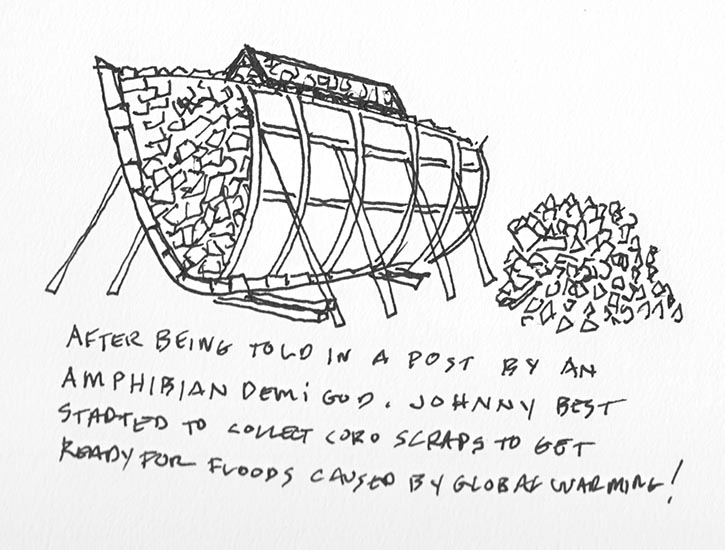 AFTER BEING TOLD IN A POST BY AN
AMPHIBIAN DEMI GOD. JOHNNY BEST
STARTED TO COLLECT CORO SCRAPS TO GET
READY FOR FLOODS CAUSED BY GLOBAL WARMING!